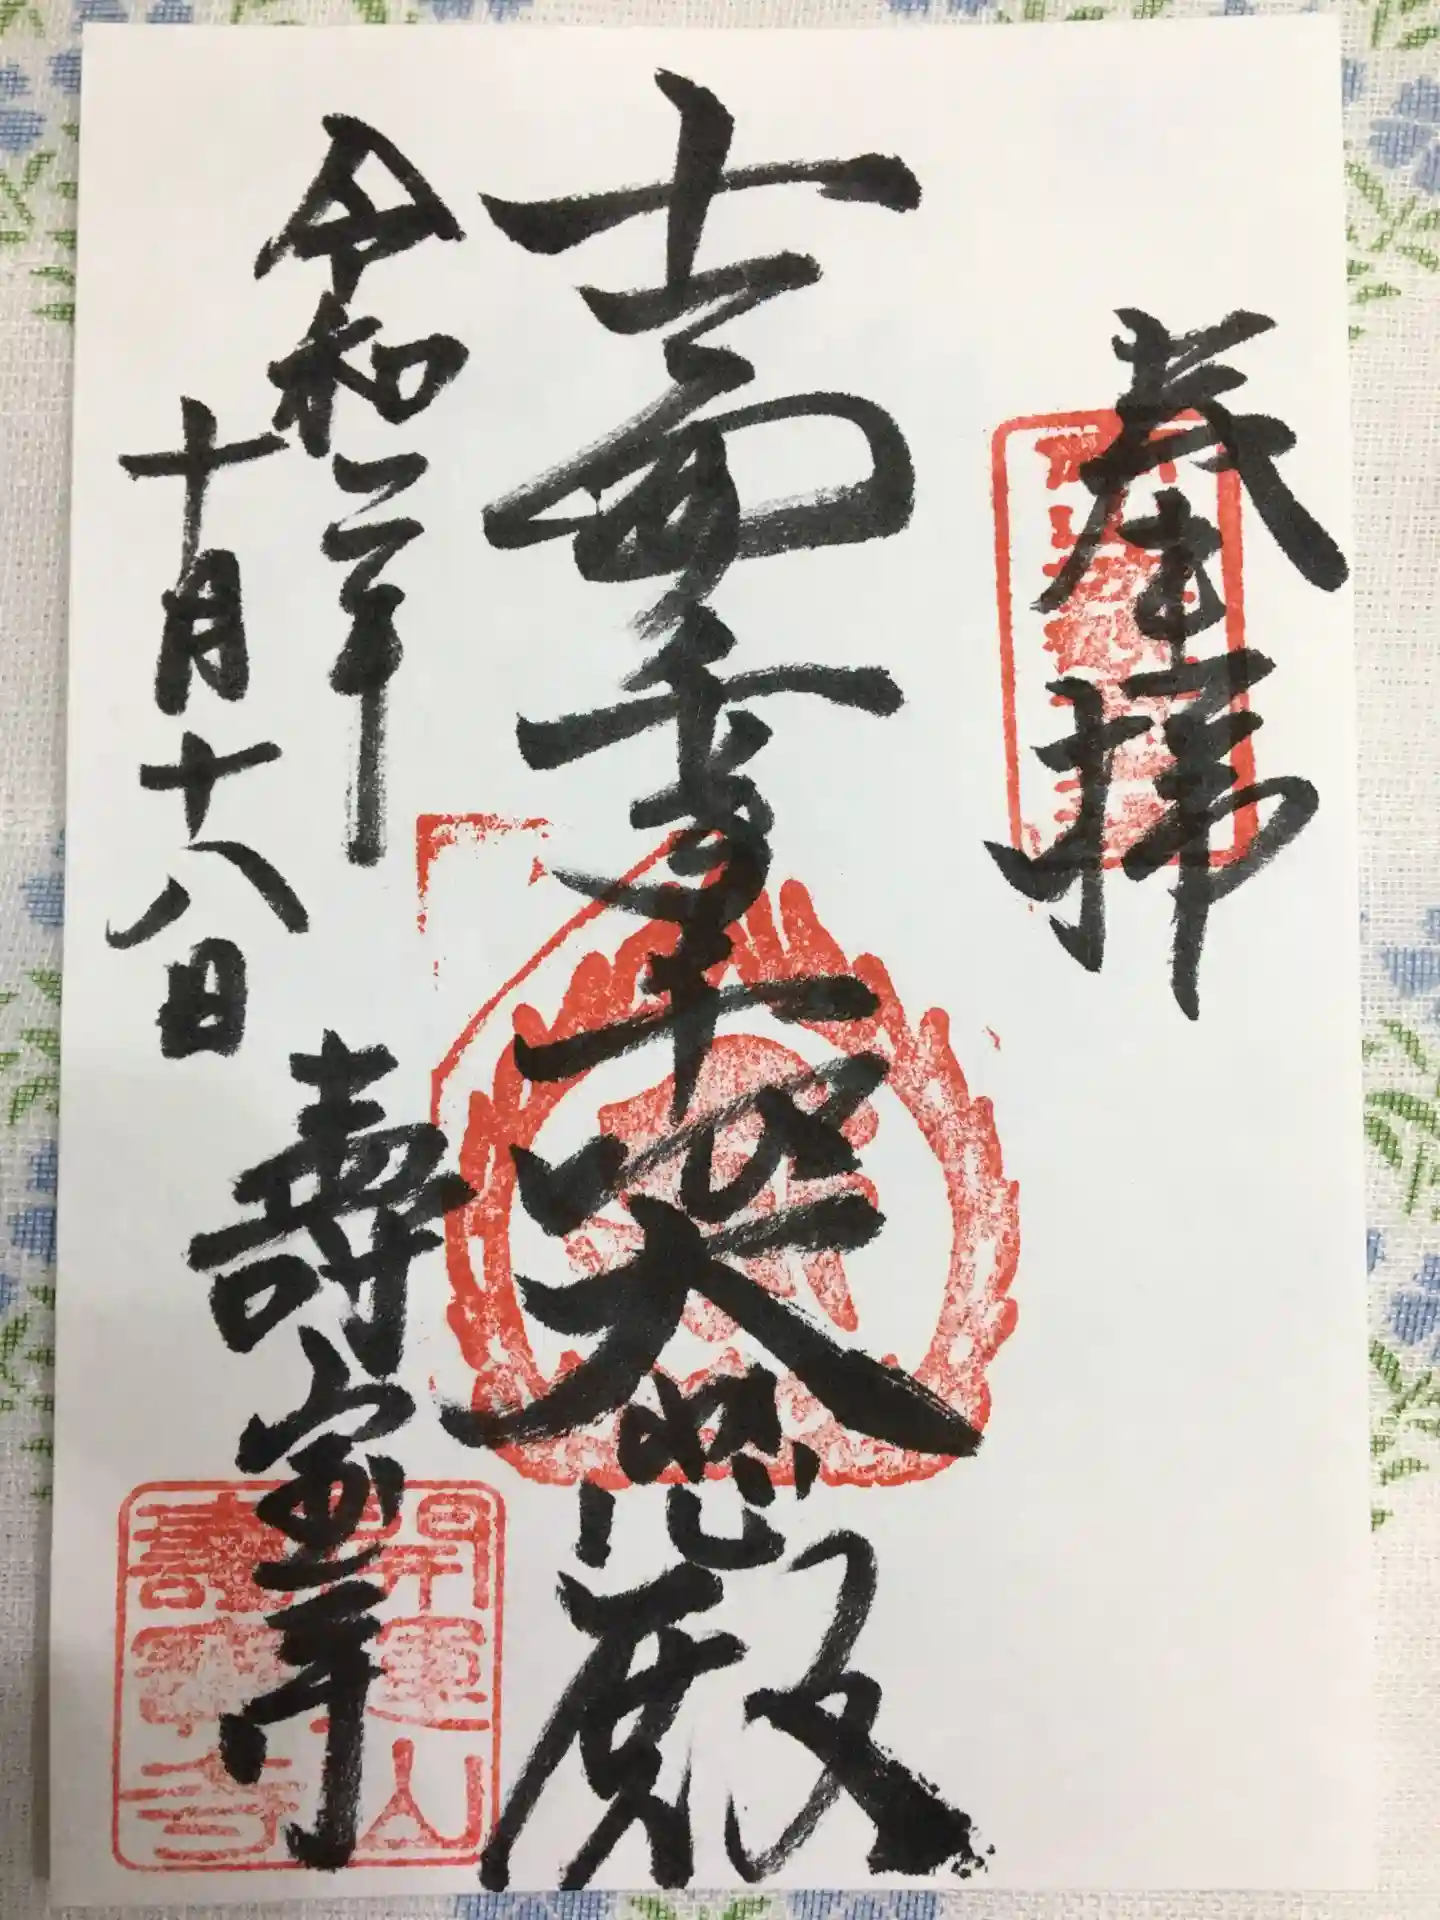 奉拝
十一面千手千眼大悲殿
令和二年
十月十八日
壽宝寺
開運山
壽寶寺